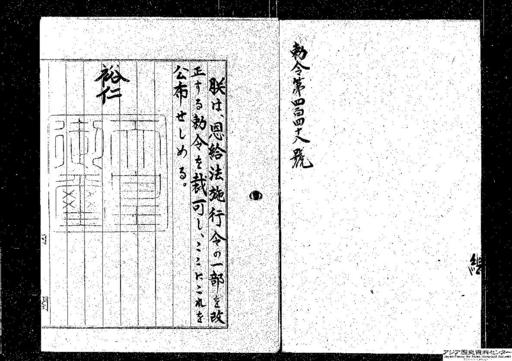 勅令第四百四十八號
朕は、恩給法施行令の一部を改
正する勅令を裁可し、ここにこれを
公布せしめる。
裕仁
天皇
御璽
内
閣
アジア歴史資料センター